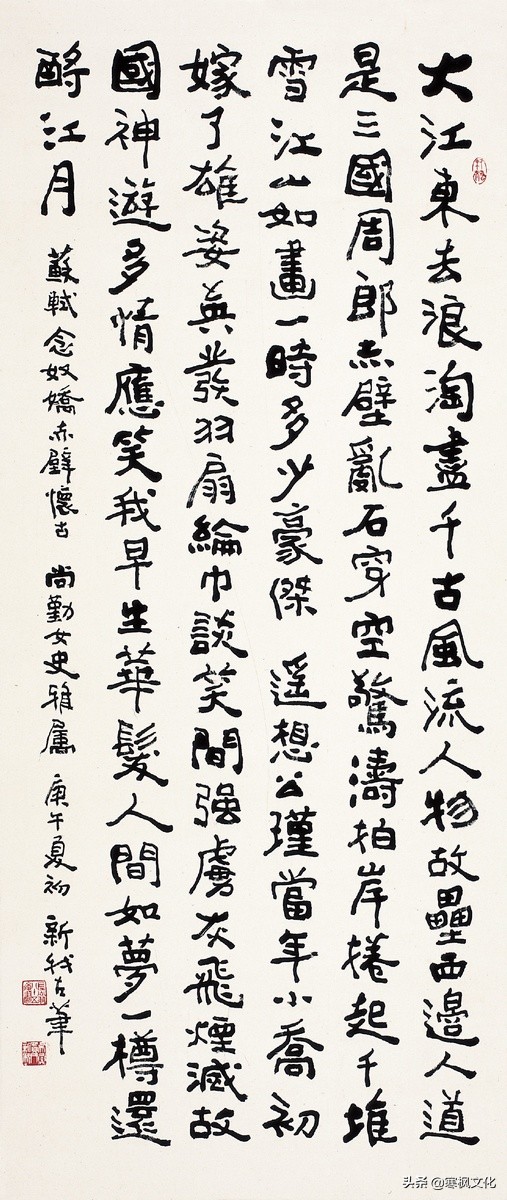 大江東去浪淘盡千古風流人物故壘西邊人道
是三國周郎赤壁亂石穿空驚濤拍岸捲起千堆
雪江山如畫一時多少豪傑 遥想公瑾當年小喬初
嫁了雄姿英發羽扇綸巾談笑間强虜灰飛煙滅故
國神遊多情應笑我早生華髮人間如夢一樽還
酹江月 蘇軾念奴嬌赤壁懷古 尚勤女史雅屬 庚午夏初 新我左筆
头条 @寒枫文化